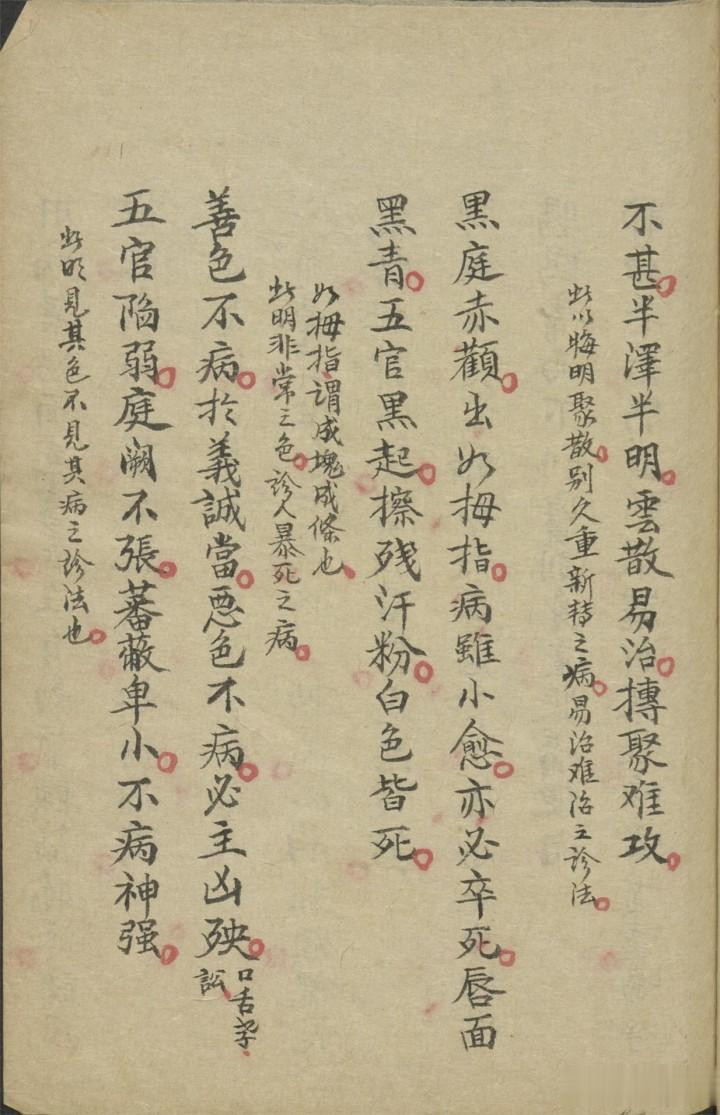 不甚半澤半明雲散易治摶聚难攻
此以晦明聚散别久重新轉之病易治难治之診法
黒庭赤顴出如拇指病雖小愈亦必卒死唇面
黑青五官黑起擦残汗粉白色皆死
如拇指謂成塊成條也
此明非常之色診人暴死之病
善色不病於義誠當惡色不病必主凶殃
口舌字訟
五官陷弱庭闕不張蕃蔽卑小不病神强
此明見其色不見其病之診法也